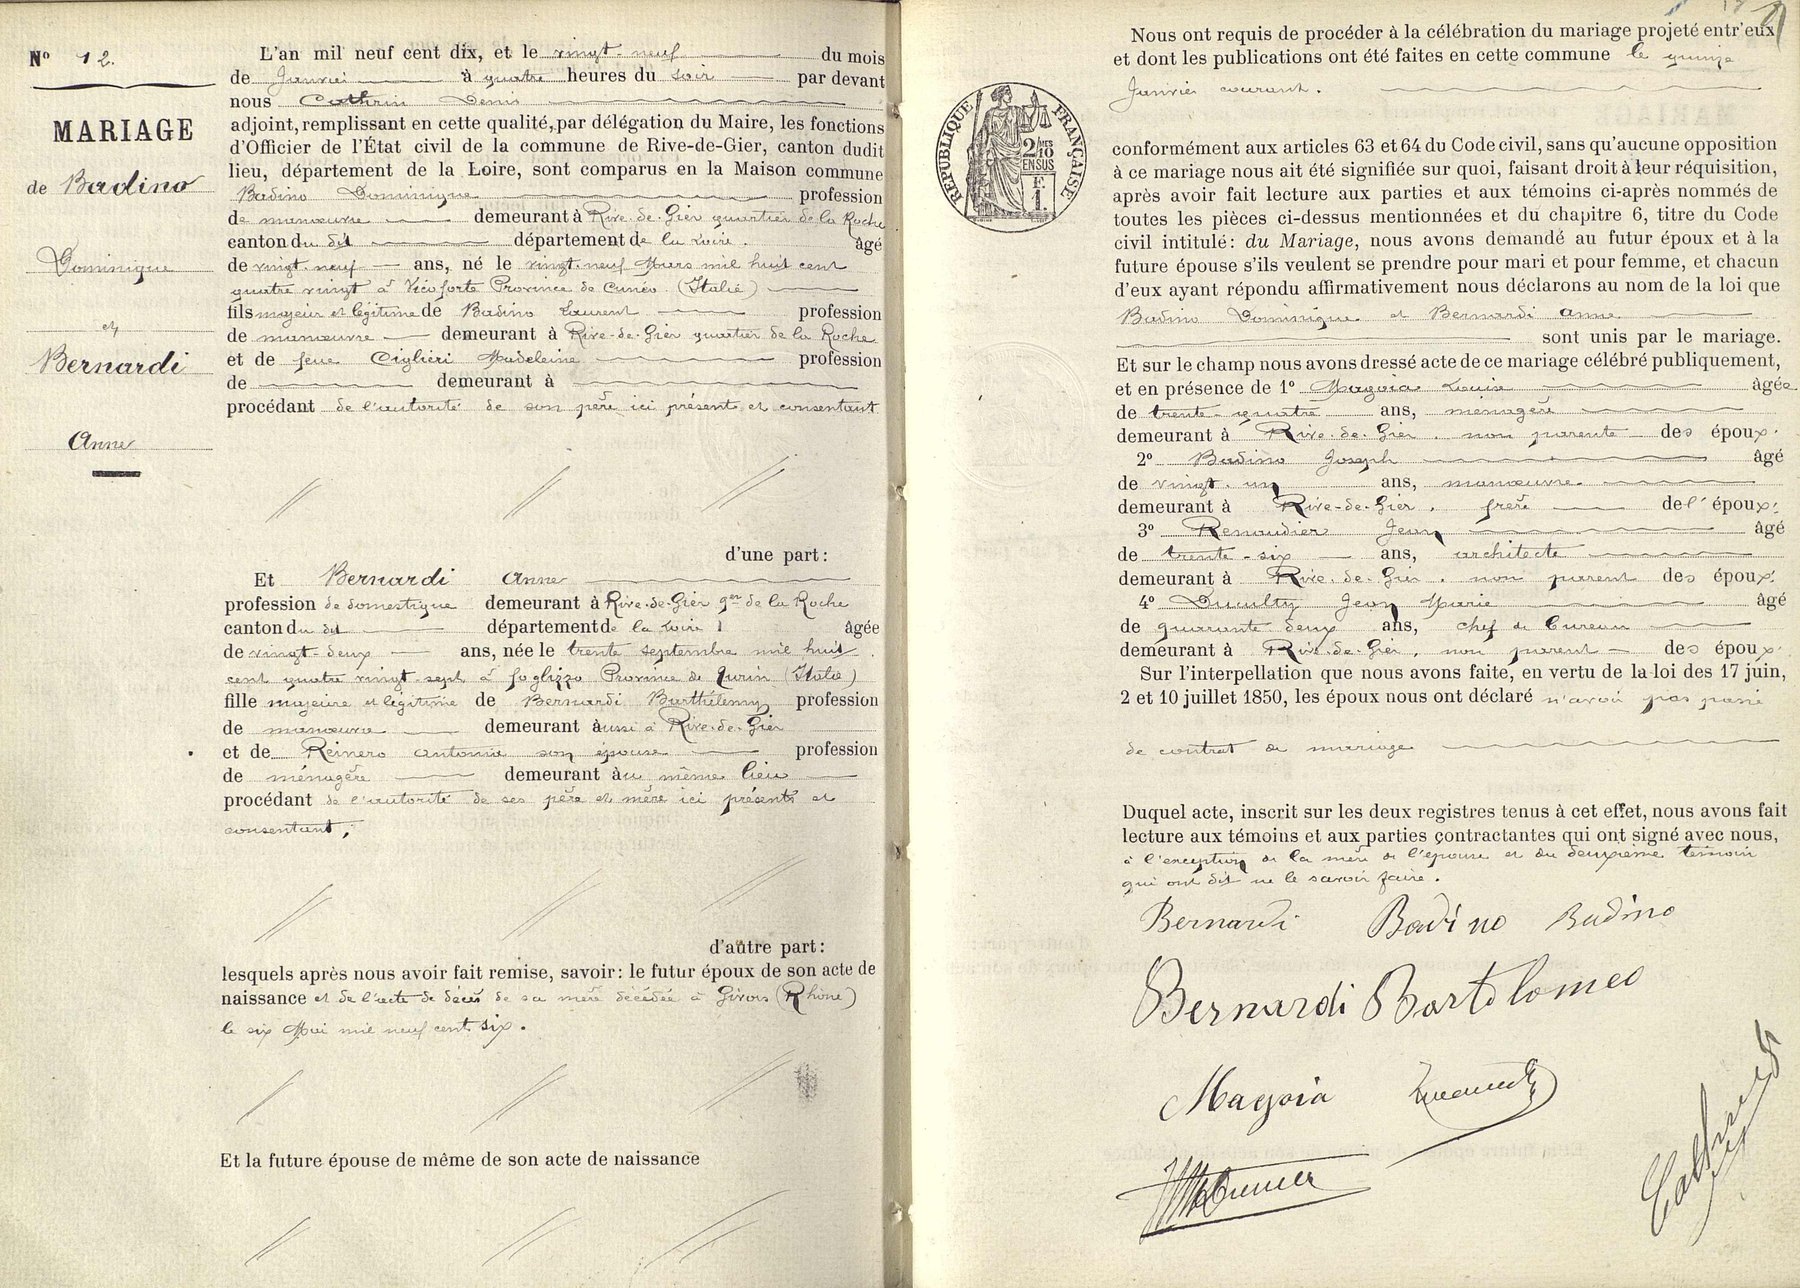 N° 12.
MARIAGE
de Badino
Dominique
et
Bernardi
Anne
L'an mil neuf cent dix, et le vingt-neuf du mois
de Janvier à quatre heures du soir par devant
nous Cothrin Denis
adjoint, remplissant en cette qualité, par délégation du Maire, les fonctions
d'Officier de l'État civil de la commune de Rive-de-Gier, canton dudit
lieu, département de la Loire, sont comparus en la Maison commune
Badino Dominique profession
de manœuvre demeurant à Rive-de-Gier quartier de la Roche
canton du dit département de la Loire. âgé
de vingt-neuf ans, né le vingt-neuf Mars mil huit cent
quatre vingt à Vicoforte Province de Cunéo (Italie)
fils majeur et légitime de Badino Laurent profession
de manœuvre demeurant à Rive-de-Gier quartier de la Roche
et de feue Ciglièri Madeleine profession
de demeurant à
procédant de l'autorité de son père ici présent et consentant
d'une part :
Et Bernardi Anne
profession de domestique demeurant à Rive-de-Gier qer de la Roche
canton du dit département de la Loire âgée
de vingt-deux ans, née le trente septembre mil huit
cent quatre vingt-sept à foglizzo Province de Turin (Italie)
fille majeure et légitime de Bernardi Barthélemy profession
de manœuvre demeurant aussi à Rive-de-Gier
et de Reinero Antonia son épouse profession
de ménagère demeurant au même lieu
procédant de l'autorité de ses père et mère ici présents et
consentant ;
d'autre part :
lesquels après nous avoir fait remise, savoir : le futur époux de son acte de
naissance et de l'acte de décès de sa mère décédée à Givors (Rhône)
le six Mai mil neuf cent six.
Et la future épouse de même de son acte de naissance
Nous ont requis de procéder à la célébration du mariage projeté entr'eux
et dont les publications ont été faites en cette commune le quinze
Janvier courant.
RÉPUBLIQUE FRANÇAISE
2/10 MES
EN SUS
F.
1.
conformément aux articles 63 et 64 du Code civil, sans qu'aucune opposition
à ce mariage nous ait été signifiée sur quoi, faisant droit à leur réquisition,
après avoir fait lecture aux parties et aux témoins ci-après nommés de
toutes les pièces ci-dessus mentionnées et du chapitre 6, titre du Code
civil intitulé : du Mariage, nous avons demandé au futur époux et à la
future épouse s'ils veulent se prendre pour mari et pour femme, et chacun
d'eux ayant répondu affirmativement nous déclarons au nom de la loi que
Badino Dominique et Bernardi Anne
sont unis par le mariage.
Et sur le champ nous avons dressé acte de ce mariage célébré publiquement,
et en présence de 1° Magoia Louise âgée
de trente-quatre ans, ménagère
demeurant à Rive-de-Gier. non parente des époux.
2° Badino Joseph âgé
de vingt-un ans, manœuvre
demeurant à Rive-de-Gier. frère de l'époux.
3° Renaudier Jean âgé
de trente-six ans, architecte
demeurant à Rive-de-Gier. non parent des époux.
4° Jean Marie âgé
de quarante deux ans, chef de bureau
demeurant à Rive-de-Gier. non parent des époux.
Sur l'interpellation que nous avons faite, en vertu de la loi des 17 juin,
2 et 10 juillet 1850, les époux nous ont déclaré n'avoir pas passé
de contrat de mariage
Duquel acte, inscrit sur les deux registres tenus à cet effet, nous avons fait
lecture aux témoins et aux parties contractantes qui ont signé avec nous,
à l'exception de la mère de l'épouse et du deuxième témoin
qui ont dit ne le savoir faire.
Bernardi Badino Badino
Bernardi Bartolomeo
Magoia